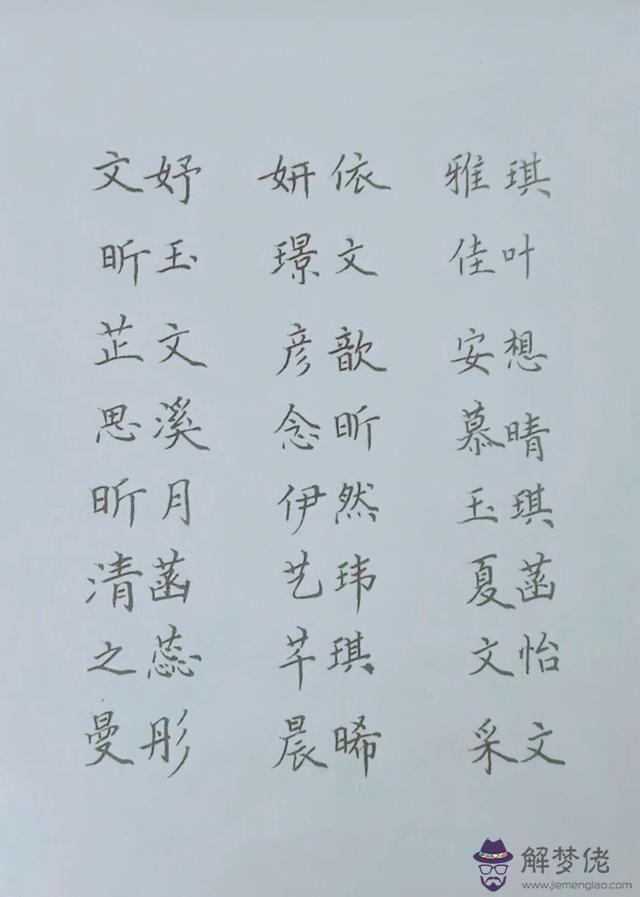 文妤 妍依 雅琪
昕玉 璟文 佳叶
芷文 彦歆 安想
思溪 念昕 慕晴
昕月 伊然 玉琪
清菡 艺玮 夏菡
之蕊 芊琪 文怡
曼彤 晨晞 采文
解梦佬
www.jiemenglao.com